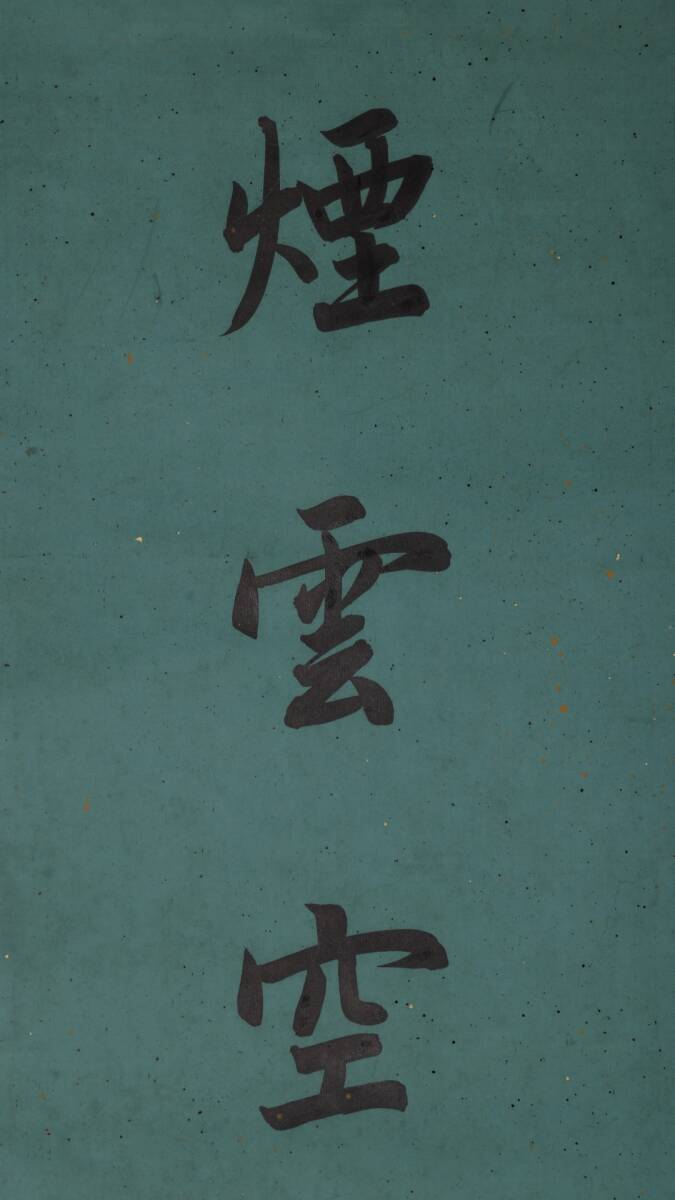 煙雲空